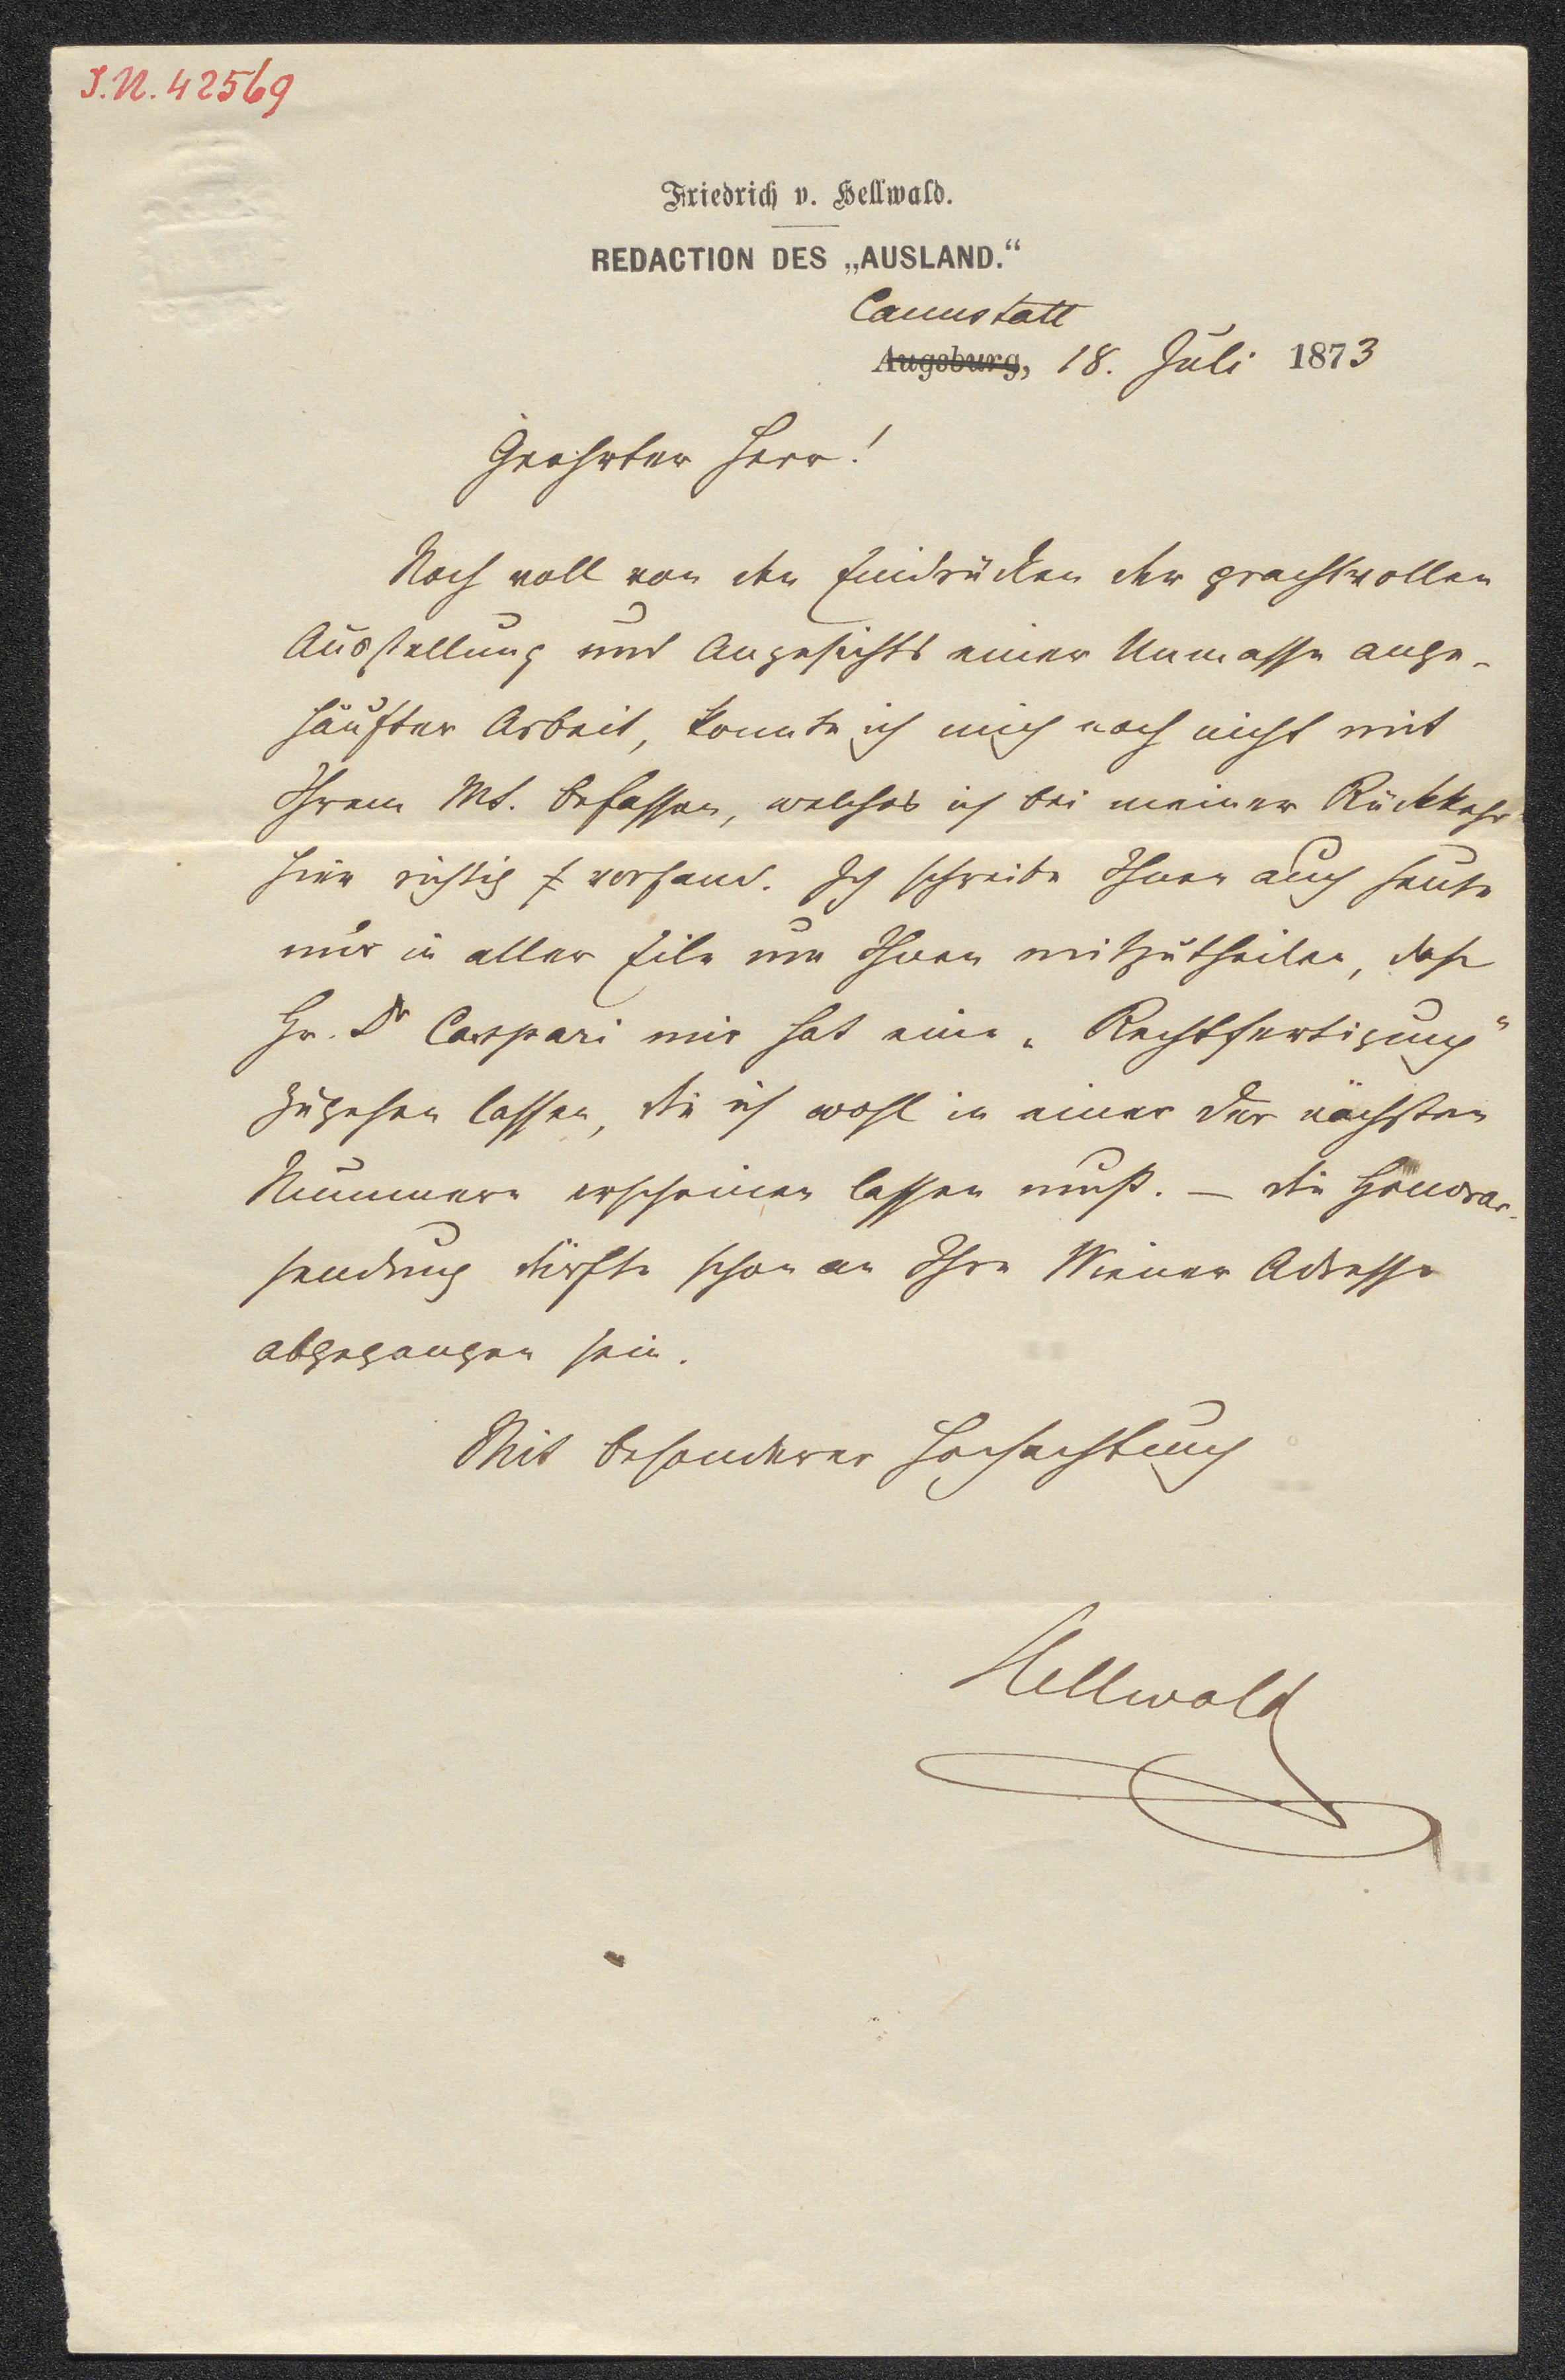 I.N. 42569
Friedrich v. Hellwald.
REDACTION DES „AUSLAND.“
Cannstatt
Augsburg, 18. Juli 1873
Geehrter Herr!
Noch voll von den Eindrücken der prachtvollen
Ausstellung und Angesichts einer Unmasse ange-
häufter Arbeit, konnte ich mich noch nicht mit
Ihrem Ms. befassen, welches ich bei meiner Rückkehr
hier richtig vorfand. Ich schreibe Ihnen auch heute
nur in aller Eile um Ihnen mitzutheilen, daß
Hr. Dr Caspari mir hat eine „Rechtfertigung“
zugehen lassen, die ich wohl in einer der nächsten
Nummern erscheinen lassen muß. — die Honorar-
sendung dürfte schon an Ihre Wiener Adresse
abgegangen sein.
Mit besonderer Hochachtung
Hellwald